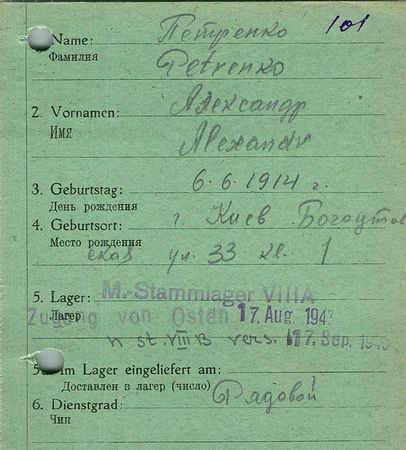 101
Name: Петренко
Фамилия Petrenko
2. Vornamen: Александр
Имя Alexandr
3. Geburtstag: 6.6.1914 г.
День рождения
4. Geburtsort: г. Киев Богоутов
Место рождения ская ул. 33 кв. 1
5. Lager: M.-Stammlager VIII A
Лагерь Zugang von Osten 17. Aug. 194
n st. VIII B vers. 17. Sep. 194
5a. Im Lager eingeliefert am:
Доставлен в лагерь (число)
6. Dienstgrad: Рядовой
Чин